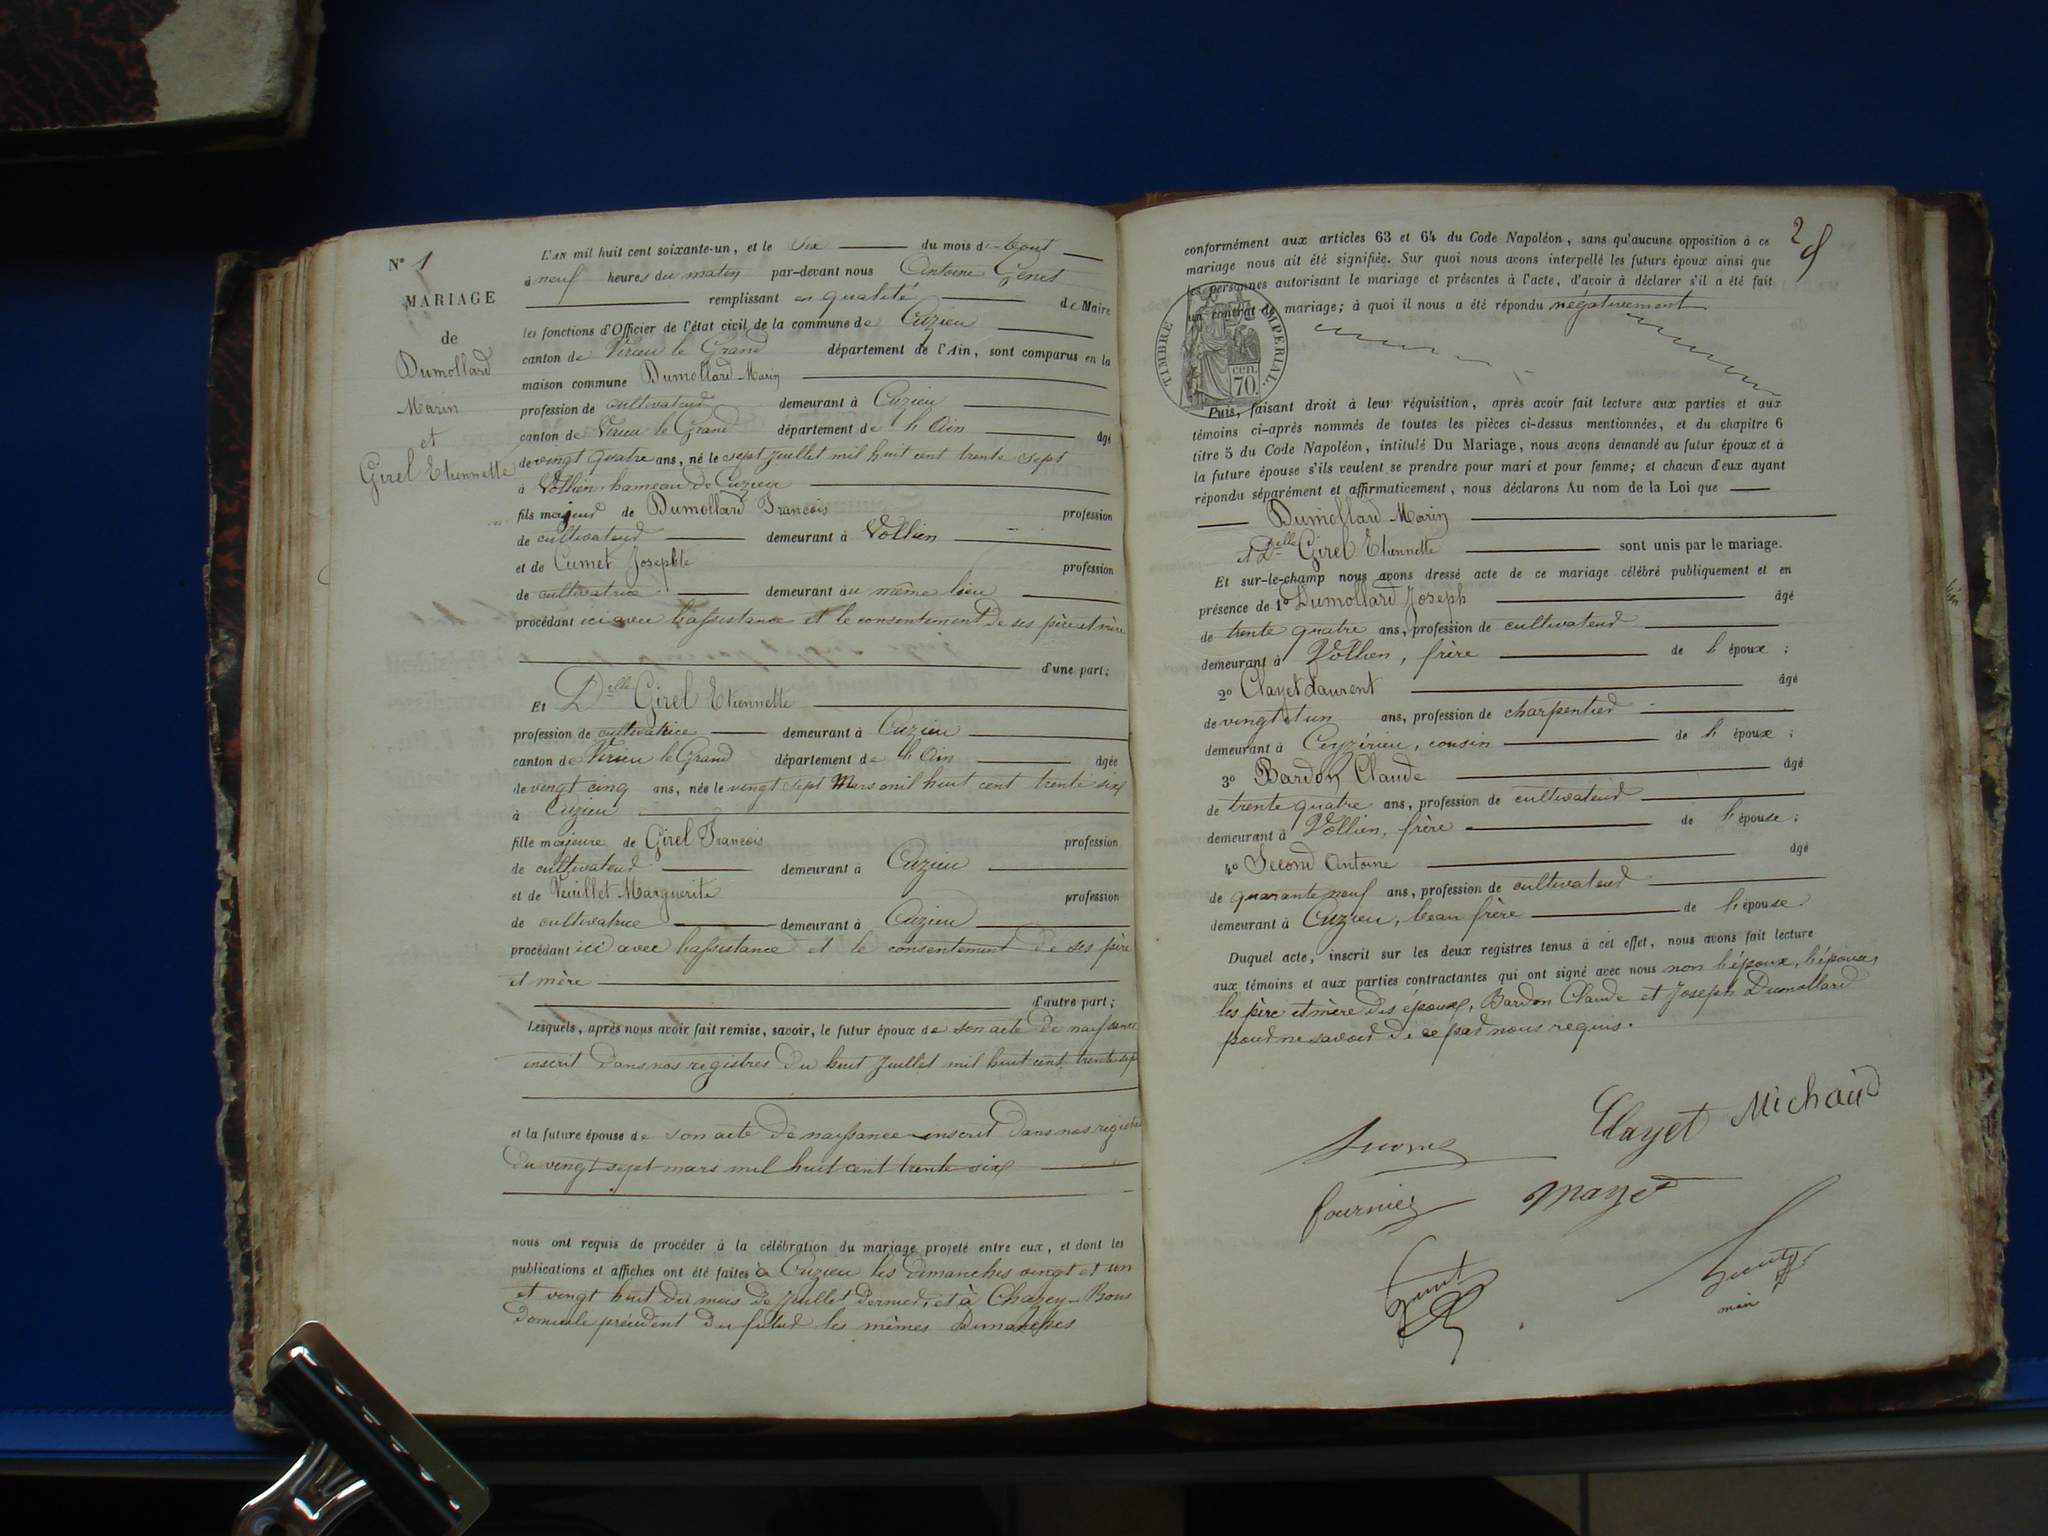 N° 1
MARIAGE
de
Dumollard
Marin
et
Girel Etiennette
L'AN mil huit cent soixante-un, et le six du mois d'août
à neuf heures du matin par-devant nous Antoine Genet
remplissant en qualité de Maire
les fonctions d'Officier de l'état civil de la commune de Cuzieu
canton de Virieu le Grand département de l'Ain, sont comparus en la
maison commune Dumollard Marin
profession de cultivateur demeurant à Cuzieu
canton de Virieu le Grand département de l'Ain âgé
de vingt quatre ans, né le sept juillet mil huit cent trente sept
à Vollien hameau de Cuzieu
fils majeur de Dumollard François profession
de cultivateur demeurant à Vollien
et de Cumet Josephte profession
de cultivatrice demeurant au même lieu
procédant ici avec l'assistance et le consentement de ses père et mère
d'une part;
Et Delle Girel Etiennette
profession de cultivatrice demeurant à Cuzieu
canton de Virieu le Grand département de l'Ain âgée
de vingt cinq ans, née le vingt sept Mars mil huit cent trente six
à Cuzieu
fille majeure de Girel François profession
de cultivateur demeurant à Cuzieu
et de Veuillet Marguerite profession
de cultivatrice demeurant à Cuzieu
procédant ici avec l'assistance et le consentement de ses père
et mère
d'autre part;
Lesquels, après nous avoir fait remise, savoir, le futur époux de son acte de naissance
inscrit dans nos registres du huit juillet mil huit cent trente sept
et la future épouse de son acte de naissance inscrit dans nos registres
du vingt sept mars mil huit cent trente six
nous ont requis de procéder à la célébration du mariage projeté entre eux, et dont les
publications et affiches ont été faites à Cuzieu les dimanches vingt et un
et vingt huit du mois de juillet dernier, et à Chazey-Bons
domicile précédent du futur les mêmes Dimanches
2
conformément aux articles 63 et 64 du Code Napoléon, sans qu'aucune opposition à ce
mariage nous ait été signifiée. Sur quoi nous avons interpellé les futurs époux ainsi que
les personnes autorisant le mariage et présentes à l'acte, d'avoir à déclarer s'il a été fait
un contrat de mariage; à quoi il nous a été répondu négativement
TIMBRE IMPERIAL.
cen.
70.
Puis, faisant droit à leur réquisition, après avoir fait lecture aux parties et aux
témoins ci-après nommés de toutes les pièces ci-dessus mentionnées, et du chapitre 6
titre 5 du Code Napoléon, intitulé Du Mariage, nous avons demandé au futur époux et à
la future épouse s'ils veulent se prendre pour mari et pour femme; et chacun d'eux ayant
répondu séparément et affirmativement, nous déclarons Au nom de la Loi que
Dumollard Marin
et Delle Girel Etiennette sont unis par le mariage.
Et sur-le-champ nous avons dressé acte de ce mariage célébré publiquement et en
présence de 1° Dumollard Joseph âgé
de trente quatre ans, profession de cultivateur
demeurant à Vollien, frère de l'époux;
2° Clayet Laurent âgé
de vingt et un ans, profession de charpentier
demeurant à Ceyzérieu, cousin de l'époux;
3° Bardon Claude âgé
de trente quatre ans, profession de cultivateur
demeurant à Vollien, frère de l'épouse;
4° Second Antoine âgé
de quarante neuf ans, profession de cultivateur
demeurant à Cuzieu, beau frère de l'épouse.
Duquel acte, inscrit sur les deux registres tenus à cet effet, nous avons fait lecture
aux témoins et aux parties contractantes qui ont signé avec nous non l'époux, l'épouse,
les père et mère des époux, Bardon Claude et Joseph Dumollard
pour ne savoir de ce par nous requis.
Clayet Michaud
fournier mayet
genet